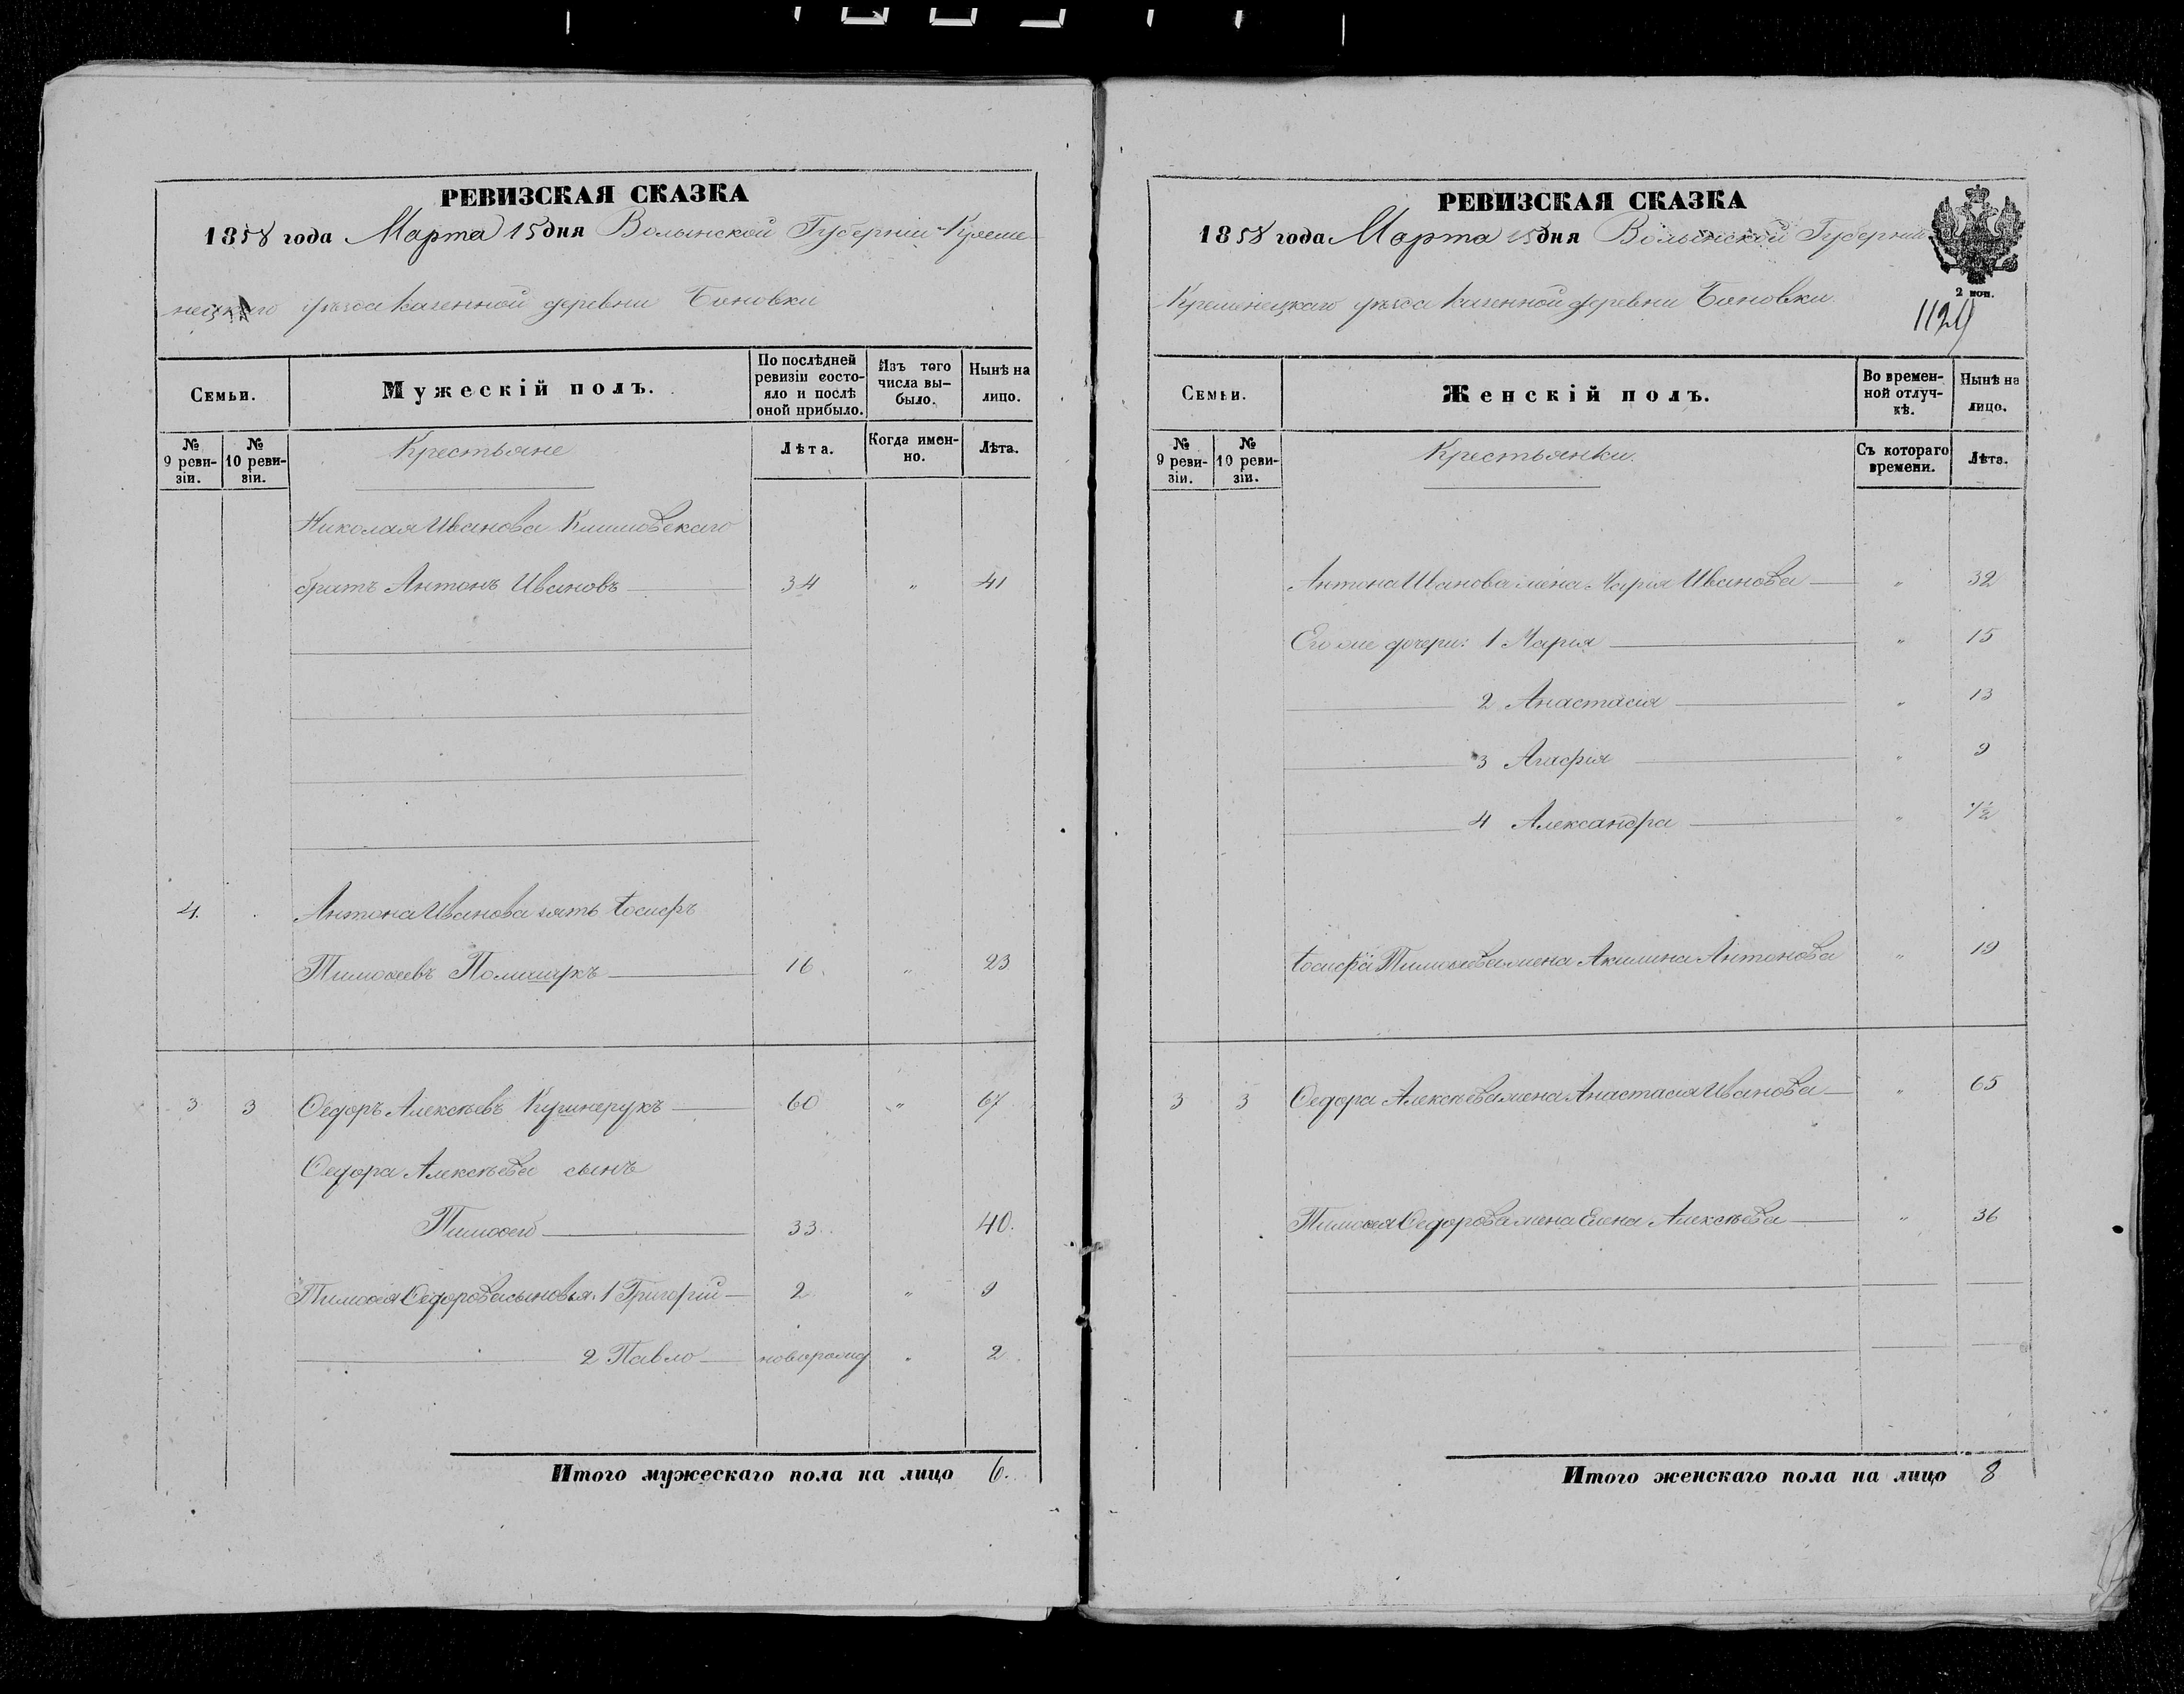 РЕВИЗСКАЯ СКАЗКА
1858 года Марта 15 дня Волынской Губерніи Кремѣ-
нецкаго уѣзда казенной деревни Боновки
Семьи.
Мужескій полъ.
По послѣдней ревизіи состо-яло и послѣ оной прибыло.
Изъ того числа вы-было.
Нынѣ на лицо.
№ 9 реви-зіи.
№ 10 реви-зіи.
Крестьяне
Лѣта.
Когда имен-но.
Лѣта.
Николая Иванова Климовскаго
братъ Антонъ Ивановъ 34 " 41
4. Антона Иванова зять Іосифъ
Тимоѳеевъ Полищукъ 16. " 23
3 3 Ѳедоръ Алексѣевъ Кушнерукъ 60 " 67
Ѳедора Алексѣева сынъ
Тимоѳей 33. 40.
Тимоѳея Ѳедорова сыновья. 1 Григорій 2 " 9
2 Павло новорожд " 2
Итого мужескаго пола на лицо 6.
РЕВИЗСКАЯ СКАЗКА
1858 года Марта 15 дня Волынской Губерніи
2 коп.
Кременецкаго уѣзда казенной деревни Боновки
1124
Семьи.
Женскій полъ.
Во времен-ной отлуч-кѣ.
Нынѣ на лицо.
№ 9 реви-зіи.
№ 10 реви-зіи.
Крестьянки.
Съ котораго времени.
Лѣта.
Антона Иванова жена Марія Иванова " 32
Его же дочери: 1 Марія " 15
2 Анастасія " 13
3 Агафія " 9
4 Александра " 1/2
Іосифа Тимоѳеева жена Акилина Антонова " 19
3 3 Ѳедора Алексѣева жена Анастасія Иванова " 65
Тимоѳея Ѳедорова жена Елена Алексѣева " 36
Итого женскаго пола на лицо 8